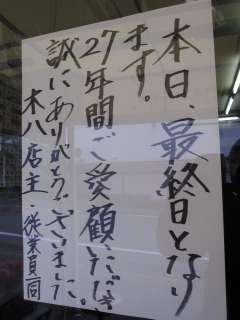 本日、最終日となり
ます。
27年間ご愛顧いただき、
誠にありがとうございました。
木八店主・従業員一同